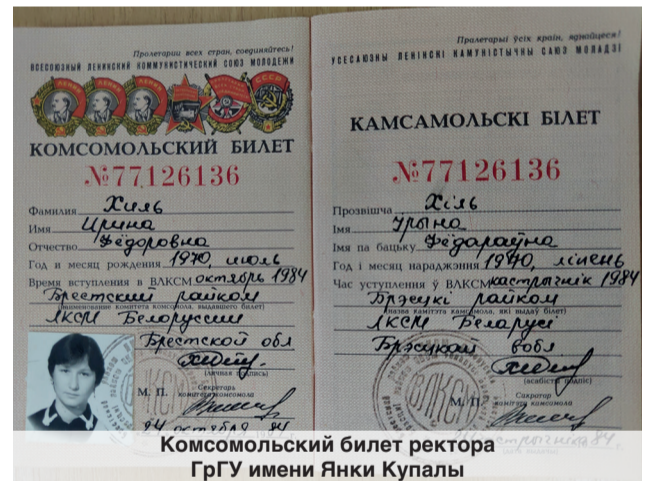 Пролетарии всех стран, соединяйтесь!
ВСЕСОЮЗНЫЙ ЛЕНИНСКИЙ КОММУНИСТИЧЕСКИЙ СОЮЗ МОЛОДЕЖИ
КОМСОМОЛЬСКИЙ БИЛЕТ
№77126136
Фамилия Хиль
Имя Ирина
Отчество Фёдоровна
Год и месяц рождения 1970, июль
Время вступления в ВЛКСМ октябрь 1984
Брестский райком
(наименование комитета комсомола, выдавшего билет)
ЛКСМ Белоруссии
Брестской обл
(личная подпись)
М. П. Секретарь
комитета комсомола
24 октября 84
Пралетарыі ўсіх краін, яднайцеся!
УСЕСАЮЗНЫ ЛЕНІНСКІ КАМУНІСТЫЧНЫ САЮЗ МОЛАДЗІ
КАМСАМОЛЬСКІ БІЛЕТ
№77126136
Прозвішча Хіль
Імя Ірына
Імя па бацьку Фёдараўна
Год і месяц нараджэння 1970, ліпень
Час уступлення ў ВЛКСМ кастрычнік 1984
Брэсцкі райком
(назва камітэта камсамола, які выдаў білет)
ЛКСМ Беларусі
Брэсцкай вобл
(асабісты подпіс)
ВЛКСМ
М. П. Сакратар
камітэта камсамола
кастрычніка 84 г.
Комсомольский билет ректора
ГрГУ имени Янки Купалы